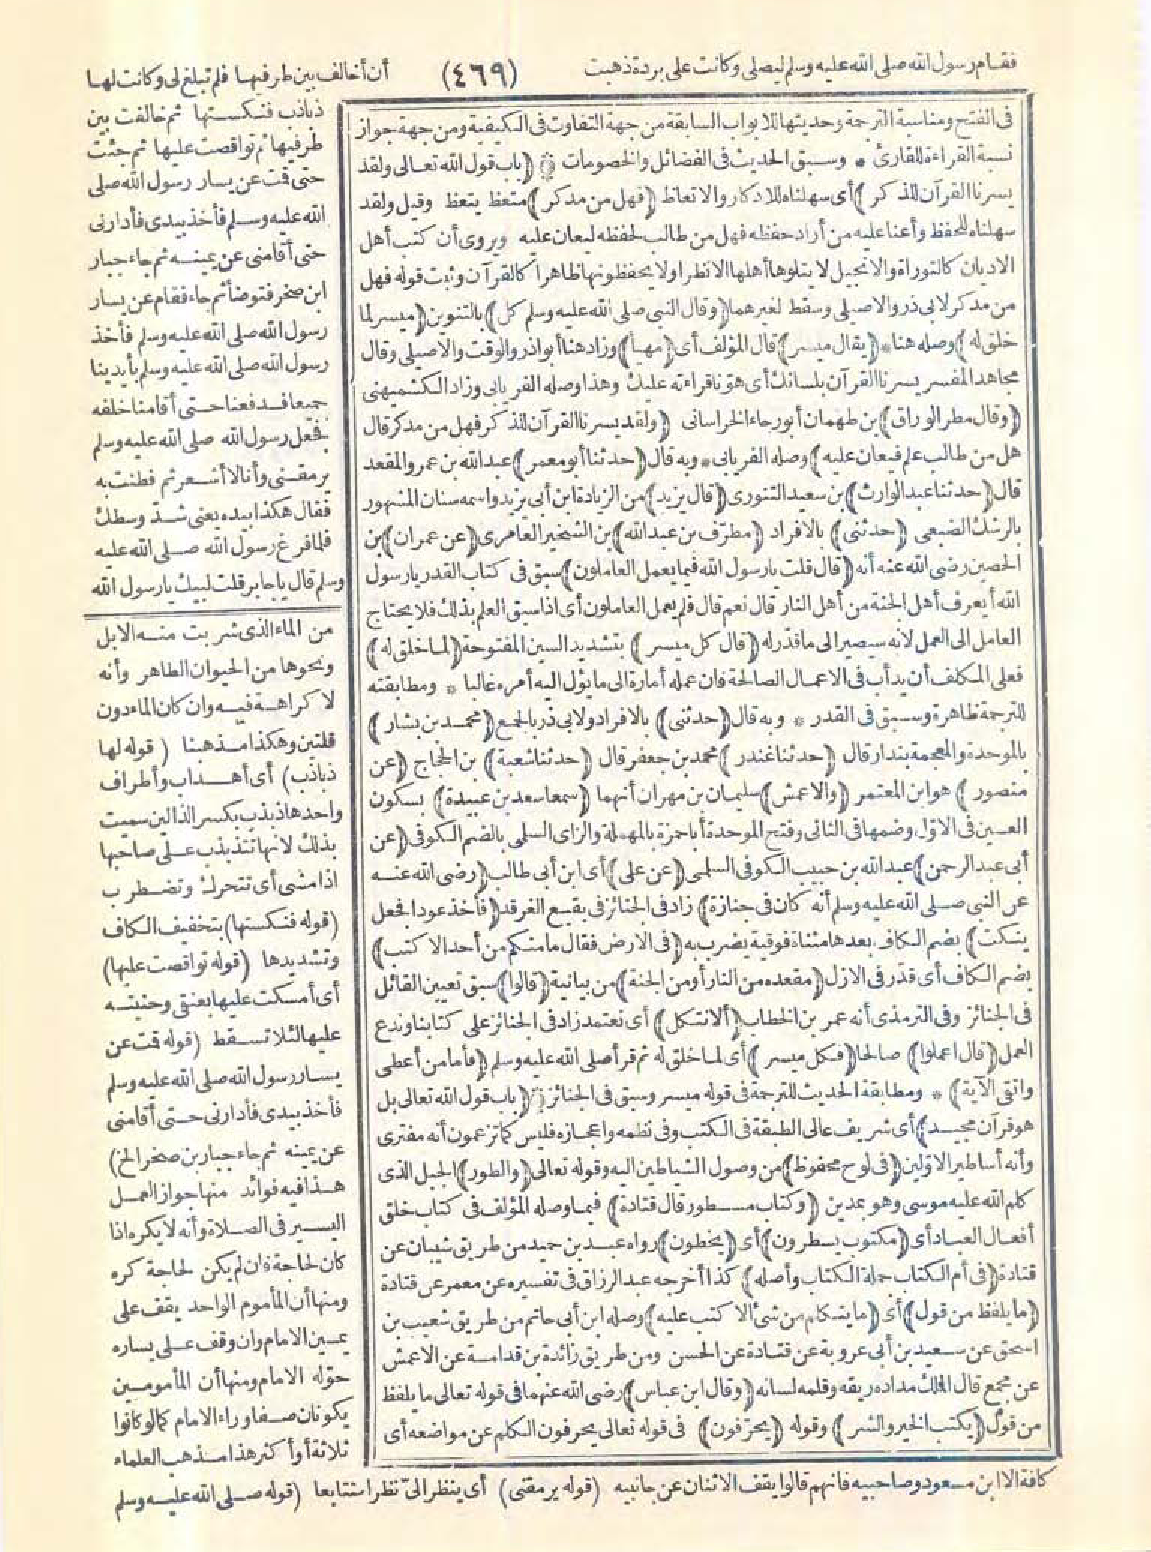 فقام رسول الله صلى الله عليه وسلم ليصلى وكانت على بردة ذهبت (٤٦٩) أن أخالف بين طرفيها فلم تبلغ لى وكانت لها
ذباذب فنكستها ثم خالفت بين
طرفيها ثم تواقصت عليها ثم جئت
حتى قمت عن يسار رسول الله صلى
الله عليه وسلم فأخذ بيدى فأدارنى
حتى أقامنى عن يمينه ثم جاء جبار
ابن صخر فتوضأ ثم جاء فقام عن يسار
رسول الله صلى الله عليه وسلم فأخذ
رسول الله صلى الله عليه وسلم بأيدينا
جميعا فدفعنا حتى أقامنا خلفه
فجعل رسول الله صلى الله عليه وسلم
يرمقنى وأنا لا أشعر ثم فطنت به
فقال هكذا بيده يعنى شد وسطك
فلما فرغ رسول الله صلى الله عليه
وسلم قال يا جابر قلت لبيك يا رسول الله
فى الفتح ومناسبة الترجمة وحديثها للابواب السابقة من جهة التفاوت فى الكيفية ومن جهة جواز
نسبة القراءة للقارئ * وسبق الحديث فى الفضائل والخصومات (باب قول الله تعالى ولقد
يسرنا القرآن للذكر) أى سهلناه للادكار والاتعاظ (فهل من مدكر) متعظ يتعظ وقيل ولقد
سهلناه للحفظ وأعنا عليه من أراد حفظه فهل من طالب لحفظه ليعان عليه ويروى أن كتب أهل
الاديان كالتوراة والانجيل لا يتلوها أهلها الا نظرا ولا يحفظونها ظاهرا كالقرآن وثبت قوله فهل
من مدكر لابى ذر والاصيلى وسقط لغيرهما (وقال النبى صلى الله عليه وسلم كل) بالتنوين (ميسر لما
خلق له) وصله هنا * (يقال ميسر) قال المؤلف أى (مهيأ) وزاد هنا أبو اذر والوقت والاصيلى وقال
مجاهد المفسر يسرنا القرآن بلسانك أى هوّنا قراءته عليك وهذا وصله الفريابى وزاد الكشميهنى
(وقال مطر الوراق) بن طهمان أبو رجاء الخراسانى (ولقد يسرنا القرآن للذكر فهل من مدكر قال
هل من طالب علم فيعان عليه) وصله الفريابى * وبه قال (حدثنا أبو معمر) عبد الله بن عمرو المقعد
قال (حدثنا عبد الوارث) بن سعيد التنورى (قال يزيد) من الزيادة ابن أبى يزيد واسمه سنان المشهور
بالرشك الضبعى (حدثنى) بالافراد (مطرّف بن عبد الله) بن الشخير العامرى (عن عمران) بن
الحصين رضى الله عنه أنه (قال قلت يا رسول الله فيما يعمل العاملون) سبق فى كتاب القدر يا رسول
الله أيعرف أهل الجنة من أهل النار قال نعم قال فلم يعمل العاملون أى اذا سبق العلم بذلك فلا يحتاج
العامل الى العمل لانه سيصير الى ما قدر له (قال كل ميسر) بتشديد السين المفتوحة (لما خلق له)
فعلى المكلف أن يدأب فى الاعمال الصالحة فان عمله أمارة الى ما يؤل اليه أمره غالبا * ومطابقته
للترجمة ظاهرة وسبق فى القدر * وبه قال (حدثنى) بالافراد ولابى ذر بالجمع (محمد بن بشار)
بالموحدة والمعجمة بندار قال (حدثنا غندر) محمد بن جعفر قال (حدثنا شعبة) بن الحجاج (عن
منصور) هو ابن المعتمر (والاعمش) سليمان بن مهران أنهما (سمعا سعد بن عبيدة) بسكون
العين فى الاوّل وضمها فى الثانى وفتح الموحدة أبا حمزة بالمهملة والزاى السلمى بالضم الكوفى (عن
أبى عبد الرحمن) عبد الله بن حبيب الكوفى السلمى (عن على) أى ابن أبى طالب (رضى الله عنه
عن النبى صلى الله عليه وسلم أنه كان فى جنازة) زاد فى الجنائز فى بقيع الغرقد (فأخذ عودا فجعل
ينكت) بضم الكاف بعدها مثناة فوقية يضرب به (فى الارض فقال ما منكم من أحد الا كتب)
بضم الكاف أى قدّر فى الازل (مقعده من النار أو من الجنة) من بيانية (قالوا) سبق تعيين القائل
فى الجنائز وفى الترمذى أنه عمر بن الخطاب (ألا نتكل) أى نعتمد زاد فى الجنائز على كتابنا وندع
العمل (قال اعملوا) صالحا (فكل ميسر) أى لما خلق له ثم قرأ صلى الله عليه وسلم (فأما من أعطى
واتقى الآية) * ومطابقة الحديث للترجمة فى قوله ميسر وسبق فى الجنائز (باب قول الله تعالى بل
هو قرآن مجيد) أى شريف عالى الطبقة فى الكتب وفى نظمه واعجازه فليس كما تزعمون أنه مفترى
وأنه أساطير الاوّلين (فى لوح محفوظ) من وصول الشياطين اليه وقوله تعالى (والطور) الجبل الذى
كلم الله عليه موسى وهو بمدين (وكتاب مسطور قال قتادة) فيما وصله المؤلف فى كتاب خلق
أفعال العباد أى (مكتوب يسطرون) أى (يخطون) رواه عبد بن حميد من طريق شيبان عن
قتادة (فى أم الكتاب جملة الكتاب وأصله) كذا أخرجه عبد الرزاق فى تفسيره عن معمر عن قتادة
(ما يلفظ من قول) أى (ما يتكلم من شئ الا كتب عليه) وصله ابن أبى حاتم من طريق شعيب بن
اسحق عن سعيد بن أبى عروبة عن قتادة عن الحسن ومن طريق زائدة بن قدامة عن الاعمش
عن مجمع قال الملك مداده ريقه وقلمه لسانه (وقال ابن عباس) رضى الله عنهما فى قوله تعالى ما يلفظ
من قول (يكتب الخير والشر) وقوله (يحرّفون) فى قوله تعالى يحرفون الكلم عن مواضعه أى
من الماء الذى شربت منه الابل
ونحوها من الحيوان الطاهر وأنه
لا كراهة فيه وان كان الماء دون
قلتين وهكذا مذهبنا (قوله لها
ذباذب) أى أهداب وأطراف
واحدها ذبذب بكسر الذالين سميت
بذلك لانها تتذبذب على صاحبها
اذا مشى أى تتحرك وتضطرب
(قوله فنكستها) بتخفيف الكاف
وتشديدها (قوله تواقصت عليها)
أى أمسكت عليها بعنقى وحنيته
عليها لئلا تسقط (قوله قمت عن
يسار رسول الله صلى الله عليه وسلم
فأخذ بيدى فأدارنى حتى أقامنى
عن يمينه ثم جاء جبار بن صخر الخ)
هذا فيه فوائد منها جواز العمل
اليسير فى الصلاة وأنه لا يكره اذا
كان لحاجة فان لم يكن لحاجة كره
ومنها أن المأموم الواحد يقف على
يمين الامام وان وقف على يساره
حوّله الامام ومنها أن المأمومين
يكونان صفا وراء الامام كما لو كانوا
ثلاثة أو أكثر هذا مذهب العلماء
كافة الا ابن مسعود وصاحبيه فانهم قالوا يقف الاثنان عن جانبيه (قوله يرمقنى) أى ينظر الىّ نظرا متتابعا (قوله صلى الله عليه وسلم